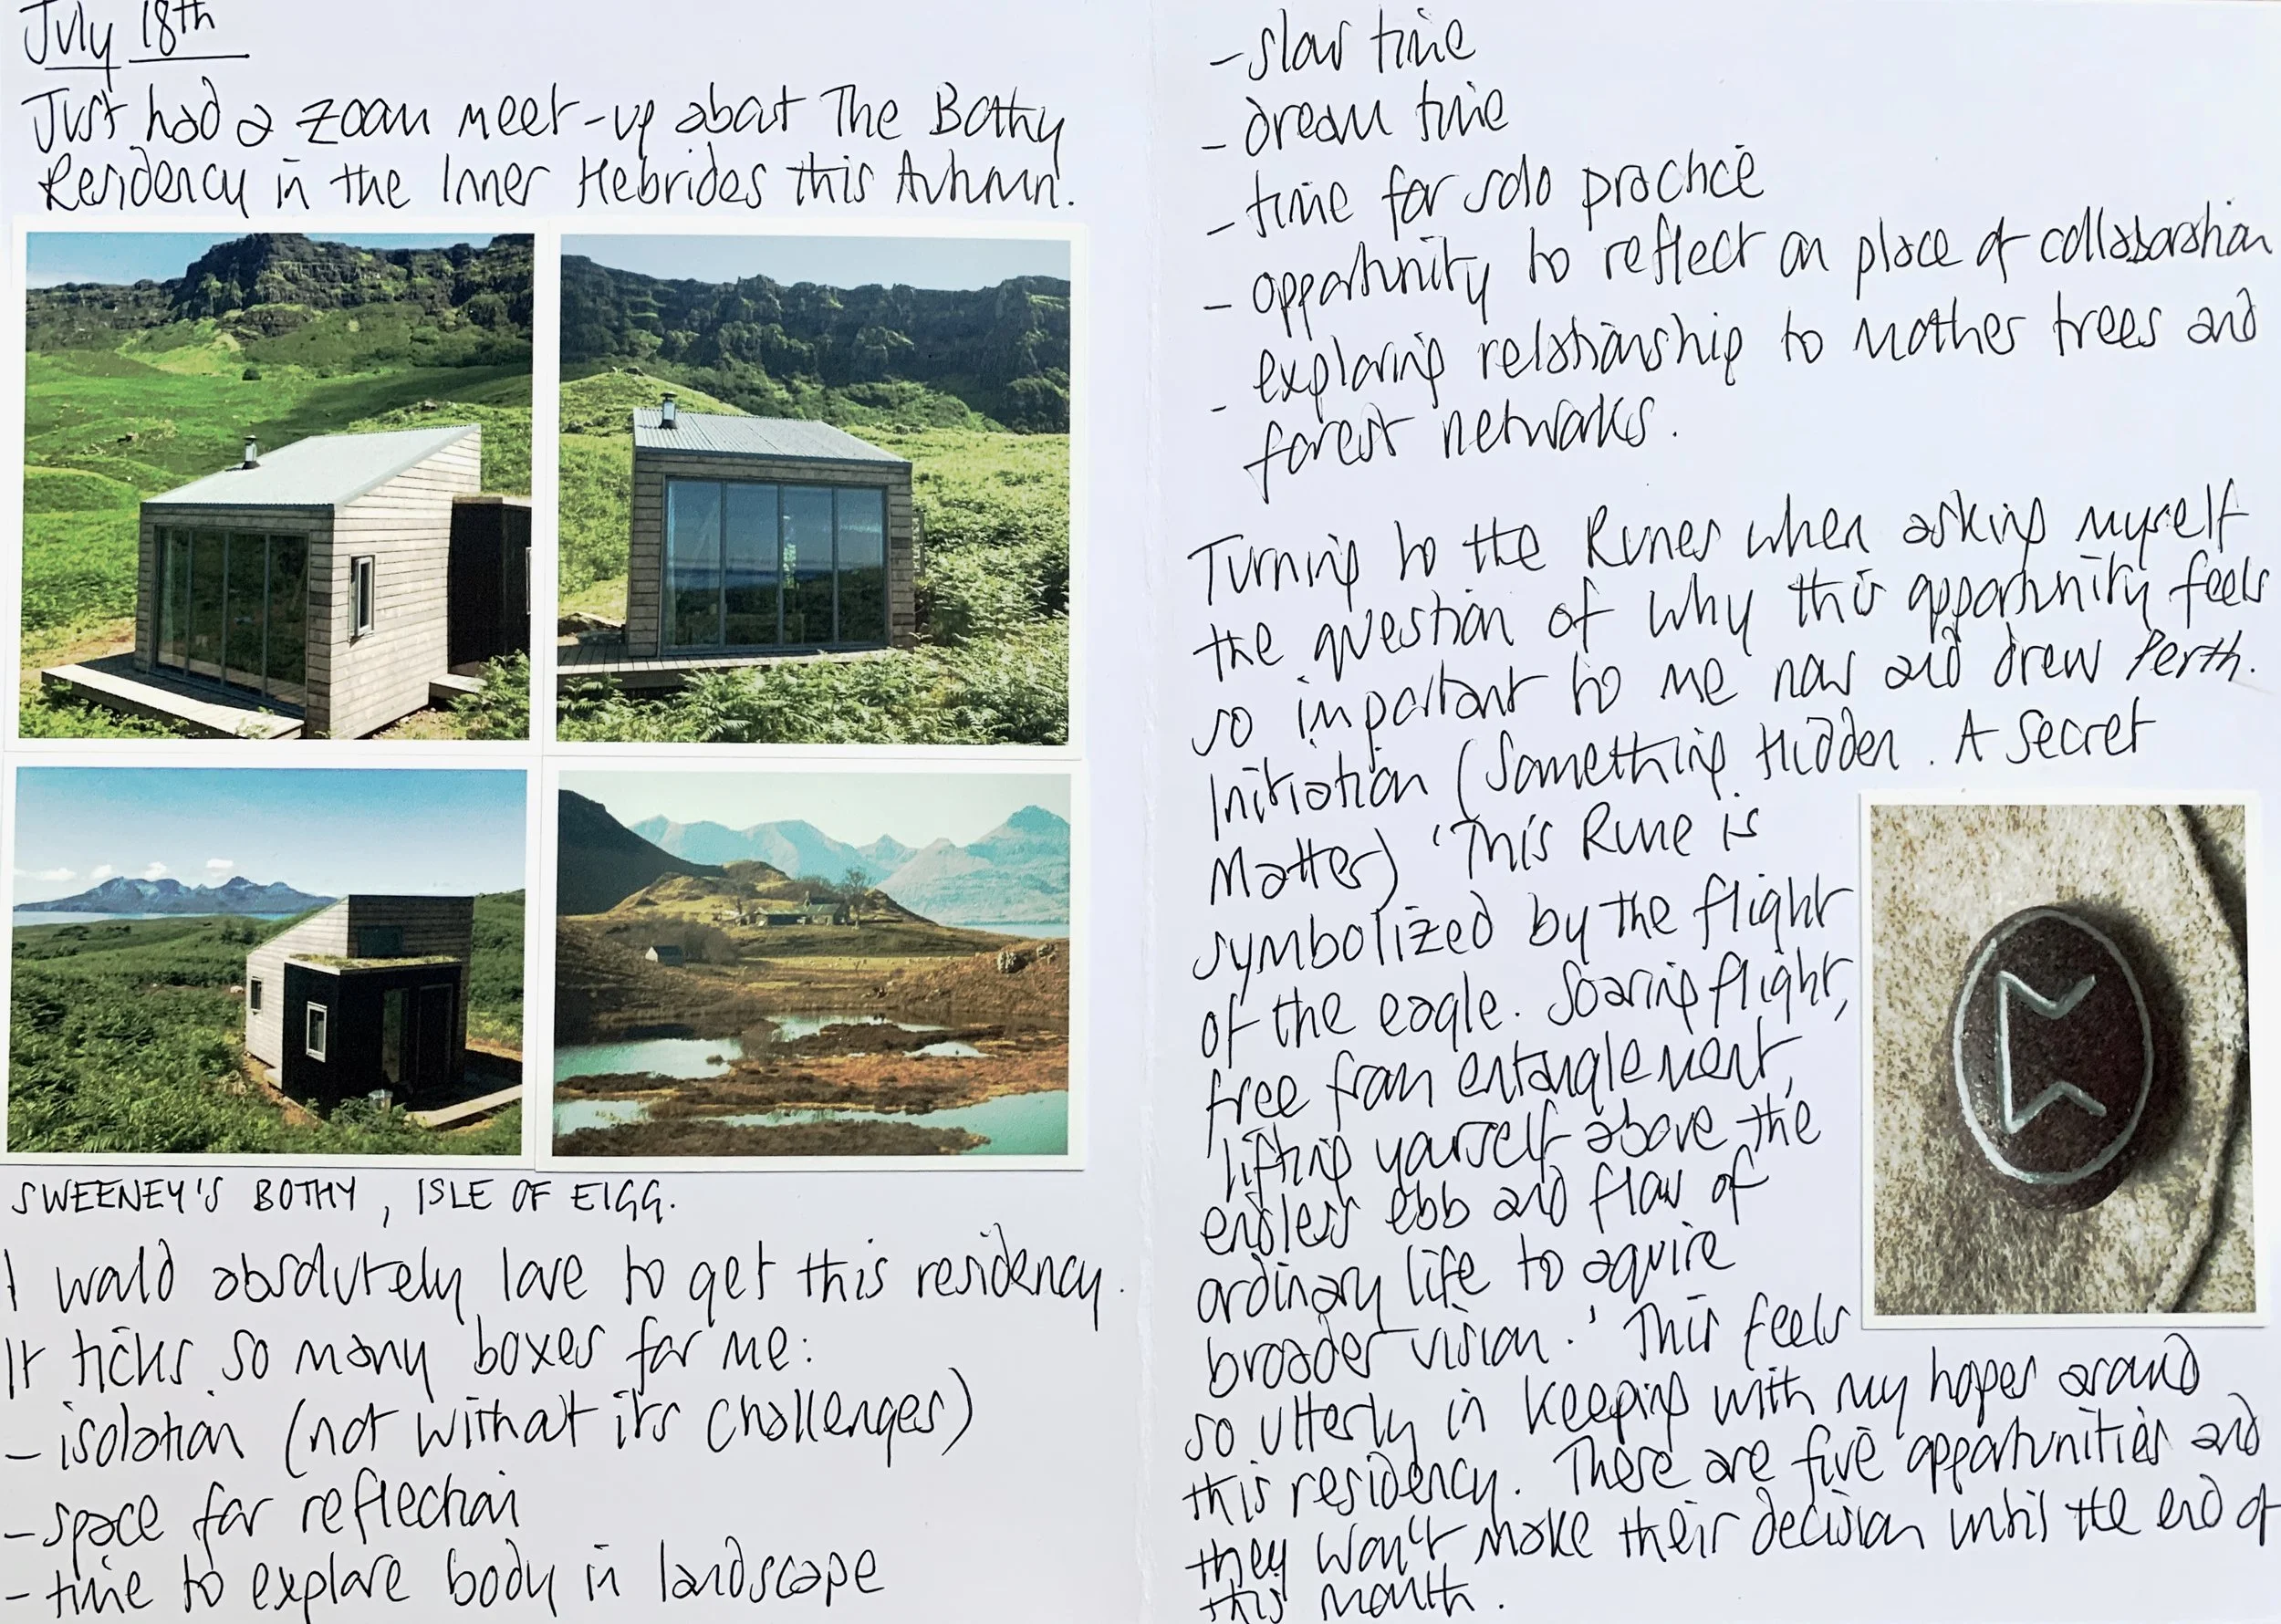 July 18th
Just had a zoom meet-up about The Bothy
Residency in the Inner Hebrides this Autumn.
SWEENEY'S BOTHY, ISLE OF EIGG.
I would absolutely love to get this residency.
It ticks so many boxes for me:
- isolation (not without its challenges)
- space for reflection
- time to explore body in landscape
- slow time
- dream time
- time for solo practice
- opportunity to reflect on place of collaboration
- exploring relationship to Mother trees and
forest networks.
Turning to the Runes when asking myself
the question of why this opportunity feels
so important to me now and drew Perth.
Initiation (Something Hidden. A Secret
Matter) 'This Rune is
symbolized by the flight
of the eagle. Soaring flight,
free from entanglement,
lifting yourself above the
endless ebb and flow of
ordinary life to aquire
broader vision.' This feels
so utterly in keeping with my hopes around
this residency. There are five opportunities and
they won't make their decision until the end of
this month.